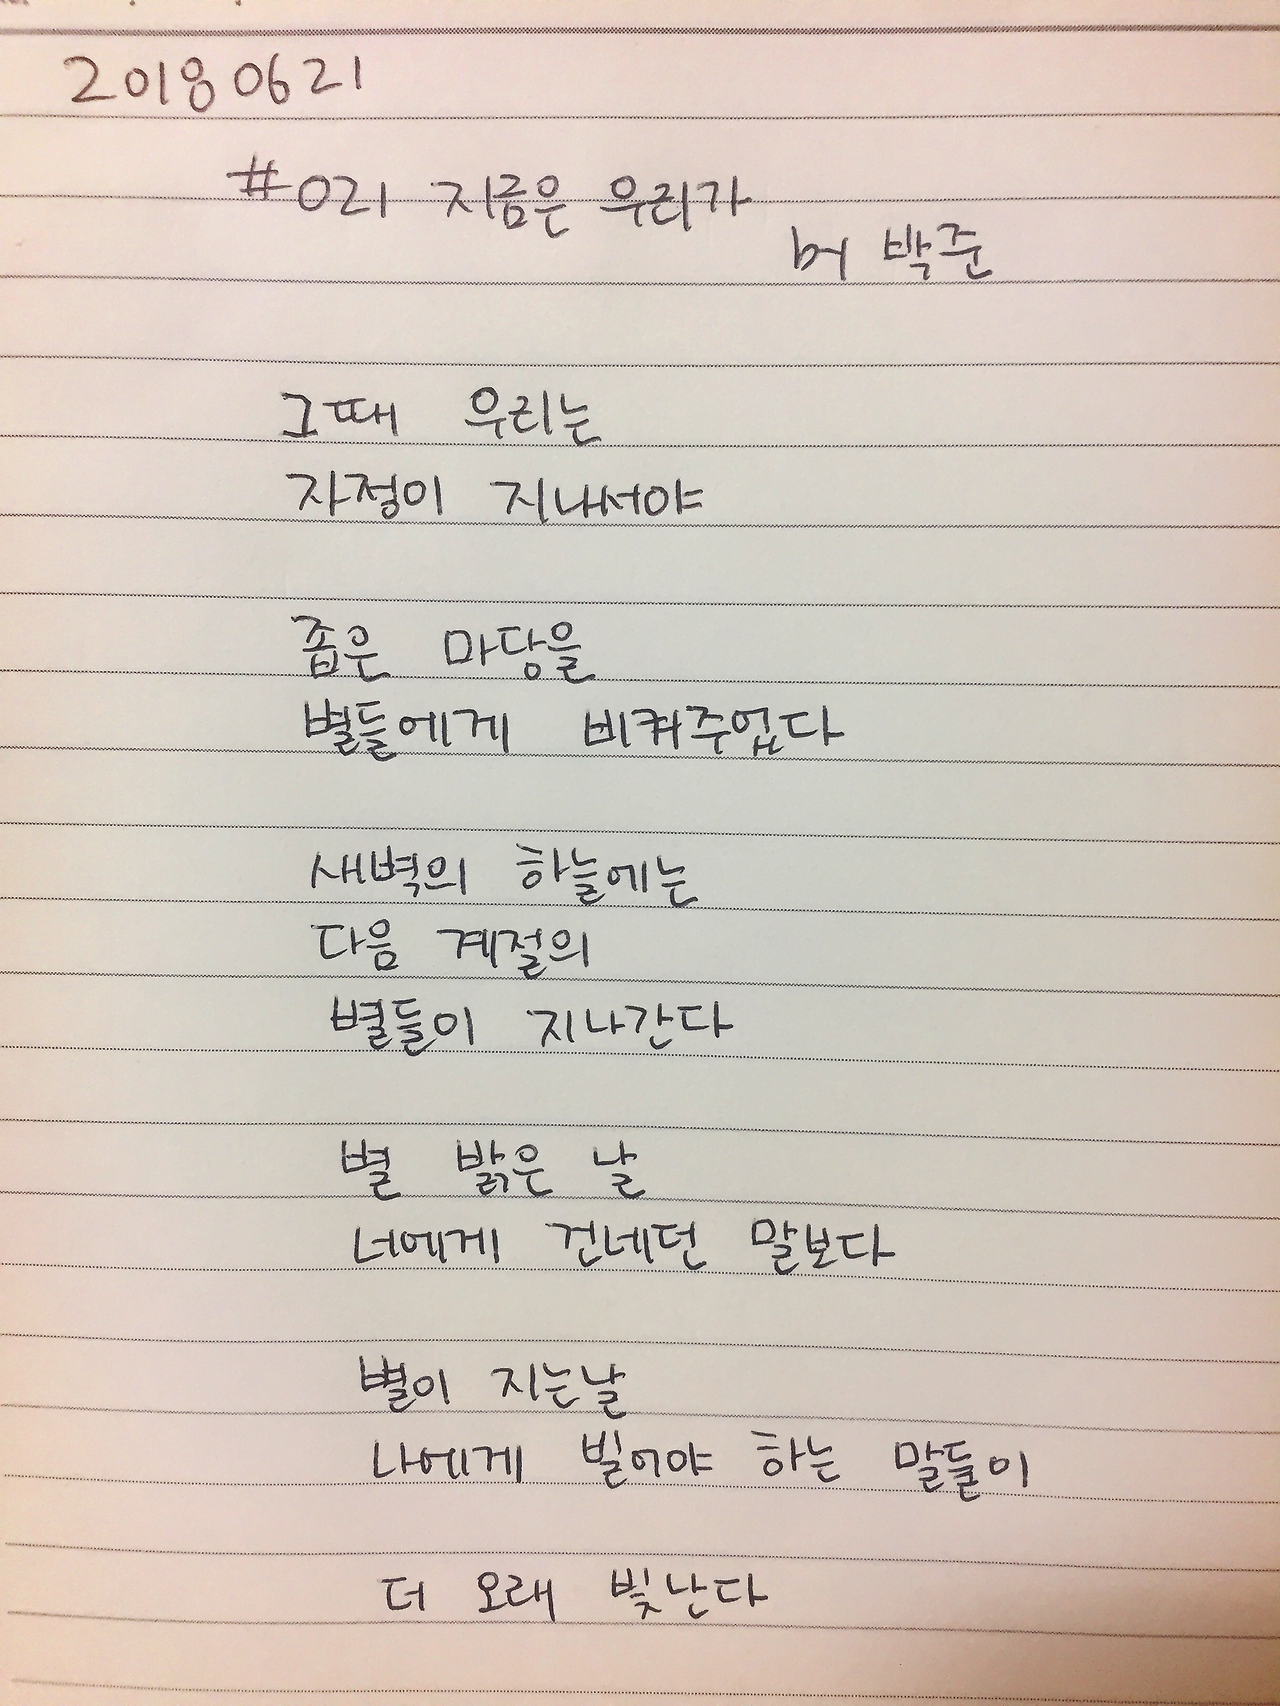 20180621
#021 지금은 우리가
by 박준
그때 우리는
자정이 지나서야
좁은 마당을
별들에게 비켜주었다
새벽의 하늘에는
다음 계절의
별들이 지나간다
별 밝은 날
너에게 건네던 말보다
별이 지는날
나에게 빌어야 하는 말들이
더 오래 빛난다